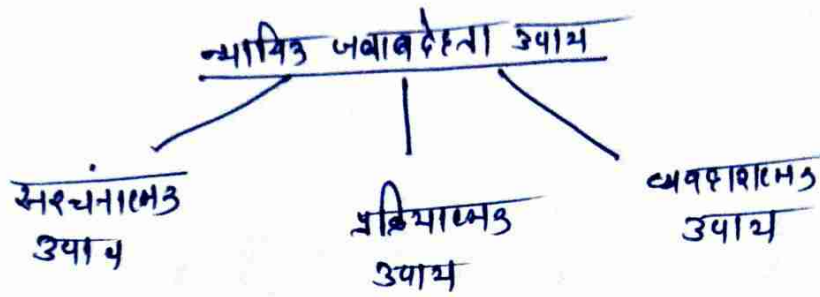 न्यायिक जवाबदेहता उपाय
संरचनात्मक
उपाय
प्रक्रियात्मक
उपाय
व्यवहारात्मक
उपाय